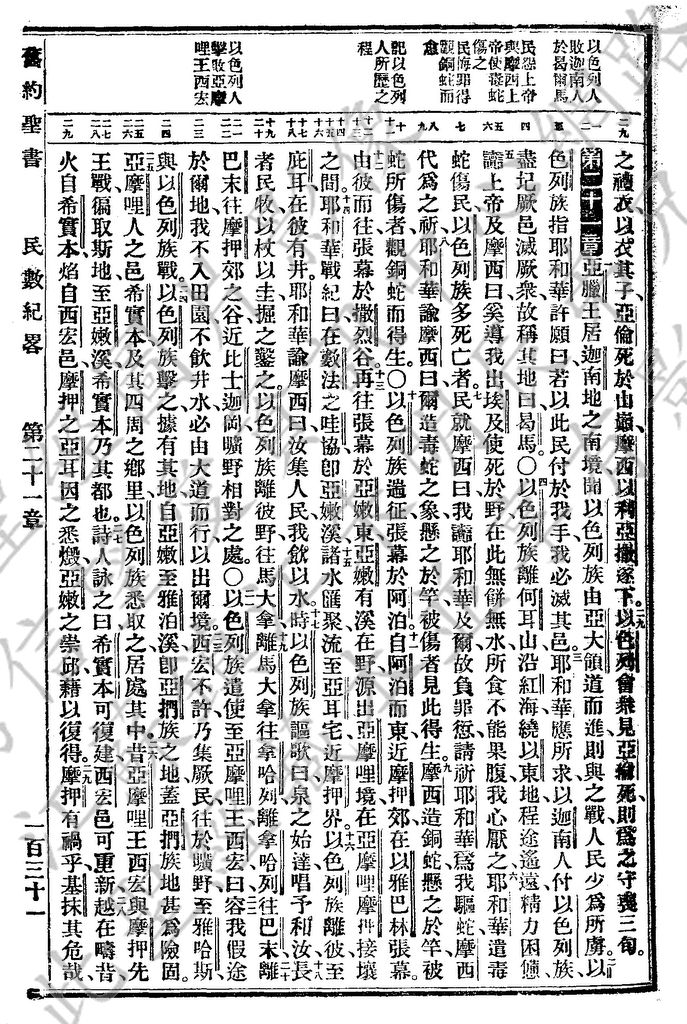 以色列人
敗迦南人
於曷爾馬
民怨上帝
與摩西上
帝使毒蛇
傷之
民悔罪得
觀銅蛇而
愈
記以色列
人所歷之
程
以色列人
擊敗亞摩
哩王西宏
之禮衣、以衣其子、亞倫死於山巔、摩西以利亞撒遂下、以色列會衆、見亞倫死、則爲之守喪三旬。
第二十一章 亞臘王居迦南地之南境、聞以色列族由亞大領道而進、則與之戰、人民少爲所虜、以
色列族指耶和華許願曰、若以此民付於我手、我必滅其邑、耶和華應所求、以迦南人付以色列族、
盡圮厥邑、滅厥衆、故稱其地曰曷馬、〇以色列族離何耳山、沿紅海繞以東地、程途遙遠、精力困憊、
讟上帝及摩西曰、奚導我出埃及、使死於野、在此無餅無水、所食不能果腹、我心厭之、耶和華遣毒
蛇傷民、以色列族多死亡者、民就摩西曰、我讟耶和華及爾、故負罪愆、請祈耶和華、爲我驅蛇、摩西
代爲之祈、耶和華諭摩西曰、爾造毒蛇之象、懸之於竿、被傷者見此得生、摩西造銅蛇、懸之於竿、被
蛇所傷者、觀銅蛇而得生、〇以色列族遄征、張幕於阿泊、自阿泊而東、近摩押郊、在以雅巴林張幕、
由彼而往、張幕於撒烈谷、再往張幕於亞嫩東、亞嫩有溪在野、源出亞摩哩境、在亞摩哩摩押接壤
之間、耶和華戰紀曰、在數法之哇協、卽亞嫩溪、諸水匯聚、流至亞耳宅、近摩押界、以色列族離彼至
庇耳、在彼有井、耶和華諭摩西曰、汝集人民、我飲以水、時以色列族謳歌曰、泉之始達、唱予和汝、長
者民牧、以杖以圭、掘之鑿之、以色列族離彼野、往馬大拿、離馬大拿往拿哈列、離拿哈列往巴末、離
巴末往摩押郊之谷、近比士迦岡、曠野相對之處、〇以色列族遣使至亞摩哩王西宏曰、容我假途
於爾地、我不入田園、不飲井水、必由大道而行、以出爾境、西宏不許、乃集厥民、往於曠野、至雅哈斯、
與以色列族戰、以色列族擊之、據有其地、自亞嫩至雅泊溪、卽亞捫族之地、蓋亞捫族地甚爲險固。
亞摩哩人之邑希實本、及其四周之鄉里、以色列族悉取之、居處其中、昔亞摩哩王西宏與摩押先
王戰、徧取斯地、至亞嫩溪、希實本乃其都也、詩人詠之曰、希實本可復建、西宏邑可重新、越在疇昔、
火自希實本、焰自西宏邑、摩押之亞耳、因之悉燬、亞嫩之崇邱、藉以復得、摩押有禍乎、基抹其危哉、
舊約聖書 民數紀畧 第二十一章 一百三十一